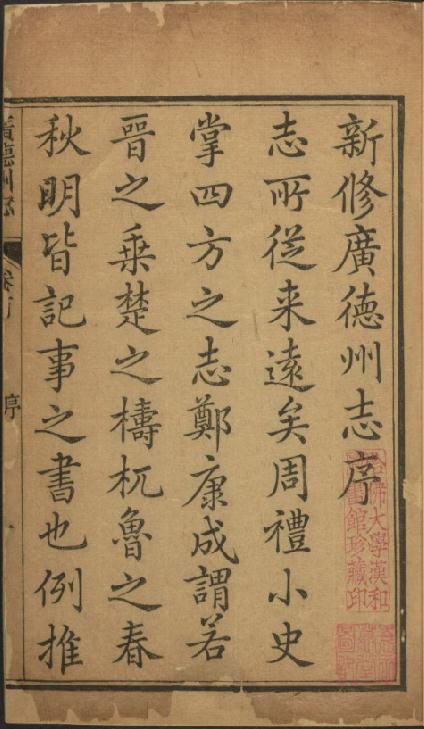 新修廣德州志序
志所從来遠矣周禮小史
掌四方之志鄭康成謂若
晉之乗楚之檮杌魯之春
秋明皆記事之書也例推
廣德州志
卷首
序
佛大學漢和
圖書館珍藏印